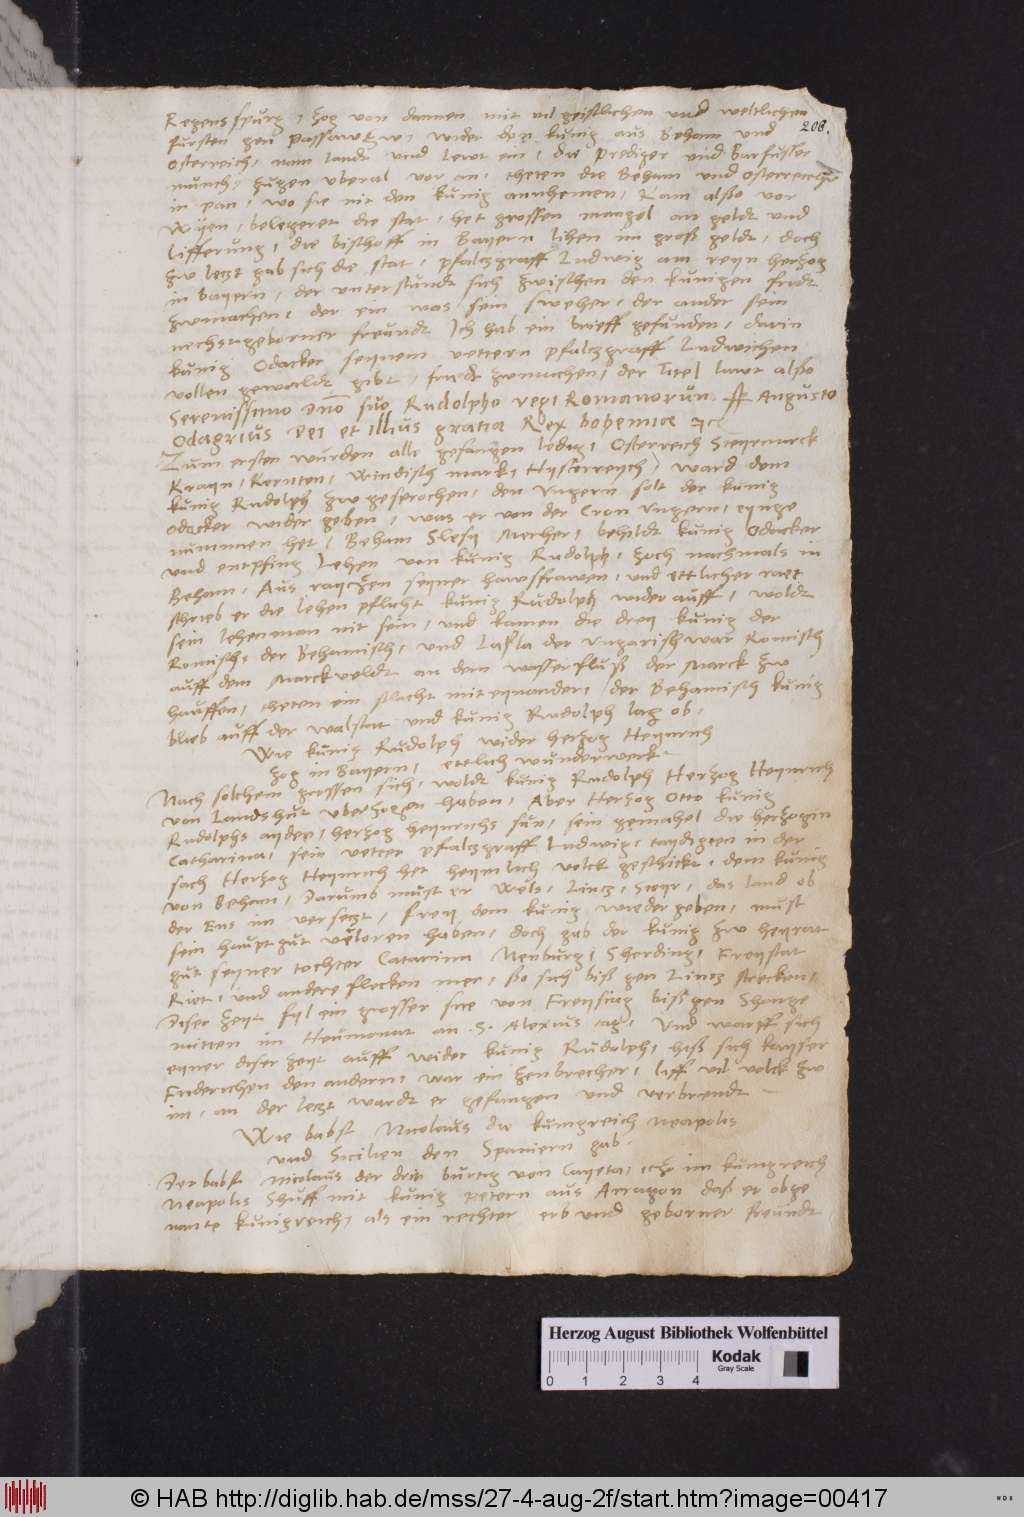 208.
Regenspurg, zog von dannen mit vil geistlichen und weltlichen
fursten gen Passaw zw, wider den kunig aus Beham und
Osterreich, nam landt und lewt ein, die Prediger und Barfusser
munch, zugen uberal vor an, theten die Beham und Osterreicher
in pan, wo sie nit den kunig annhemen, kam alßo vor
Wyen, belegeret die stat, het grossen mangel an geldt und
lifferung, die bischoff in Bayern lihen im groß geldt, doch
zw letzt gab sich die stat, pfaltzgraff Ludwig am reyn herzog
in bayern, der unterstundt sich zwischen den kunigen fridt
zwmachen, der ein was sein sweher, der ander sein
nechstgeborner freundt Ich hab ein brieff gefunden, darin
kunig Odacker seynem vettern pfaltzgraff Ludwichen
vollen gewaldt gibt, friedt zwmachen, der Titel lawt alßo
Serenissimo dno suo Rudolpho regi Romanorum Augusto
Odagrius dei et illius gratia Rex bohemiæ
Zum ersten wurden alle gefangen ledig, Osterreich Steyrmarck
Krayn, Kernten, Windisch marck, Hysterreych, ward dem
kunig Rudolph zw gesprochen, den Ungern solt der kunig
Odacker wider geben, was er von der Cron ungern, eynge
nummen het, Beham Slesy Merher, behildt kunig Odacker
und entpfing Lehen von kunig Rudolph, zoch nachmals in
Beham, Aus rayczen seyner hawsfrawen, und ettlicher raet
schrieb er die lehen pflicht kunig Rudolph wider auff, woldt
sein lehenman nit sein, und kamen die drey kunig der
Romisch, der Behamisch, und Lasla der Ungarisch war Romisch
auff dem Marckveldt an dem wasserfluß der Marck zw
hauffen, theten ein schlacht mit eynander, der Behamisch kunig
blieb auff der walstat und kunig Rudolph lag ob,
Wie kunig Rudolph wider herzog Heynrich
zog in Bayern, ettlich wunderwerk
Nach solchem grossen sich, woldt kunig Rudolph Herzog Heynrich
von Landshut uberzogen haben, Aber Herzog Otto kunig
Rudolphs ayden, herzog heynrichs sun, sein gemahel die herzogin
Catharina, sein vetter pfaltzgraff Ludwig, taydigten in der
sach Herzog Heynrich het heymlich volck geschickt, dem kunig
von Beham, Darumb must er Wels, Lintz, Steyr, das land ob
der Ens im versetzt, frey dem kunig wieder geben, must
sein hauptgut verloren haben, doch gab der kunig zw heyrat
gut seyner tochter Catarina Neuburg, Sherding, Freystat
Riet, und andere flecken mer, ßo sich biß gen Lintz strecken,
Diser Zeyt fyl ein grosser sne von Freysing biß gen Shonge
mitten im Heumonat an .S. Alexius tag, Und warff sich
eyner diser zeyt auff wider kunig Rudolph, hiß sich kayser
Friderichen den andern, war ein zenbrecher, liff vil volck zw
im, an der letzt wardt er gefangen und verbrendt
Wie babst Nicolaus die kunigreich Neapolis
und Sicilien den Spaniern gab.
Der babst Nicolaus der drit burtig von Cayeta, im kunigreich
Neapolis Shuff mit kunig Petern aus Arragon daß er obge
nante kunigreich, als ein rechter erb und geborner freundt
Herzog August Bibliothek Wolfenbüttel
Kodak
Gray Scale
0 1 2 3 4
© HAB http://diglib.hab.de/mss/27-4-aug-2f/start.htm?image=00417